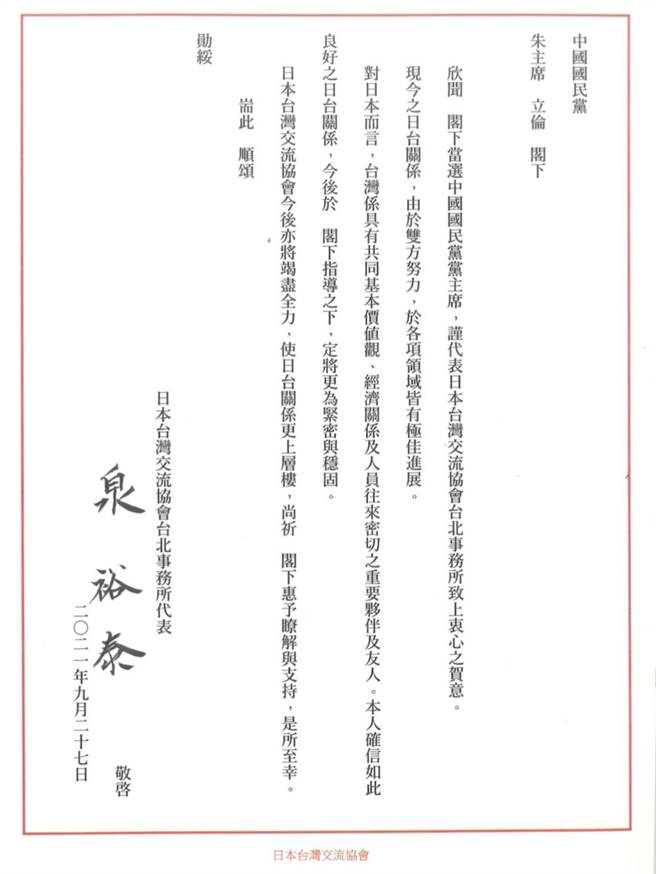 中國國民黨
朱主席 立倫 閣下
欣聞 閣下當選中國國民黨黨主席，謹代表日本台灣交流協會台北事務所致上衷心之賀意。
現今之日台關係，由於雙方努力，於各項領域皆有極佳進展。
對日本而言，台灣係具有共同基本價值觀、經濟關係及人員往來密切之重要夥伴及友人。本人確信如此
良好之日台關係，今後於 閣下指導之下，定將更為緊密與穩固。
日本台灣交流協會今後亦將竭盡全力，使日台關係更上層樓，尚祈 閣下惠予瞭解與支持，是所至幸。
耑此 順頌
勛綏
日本台灣交流協會台北事務所代表
泉 裕 泰
敬啓
二〇二一年九月二十七日
日本台灣交流協會